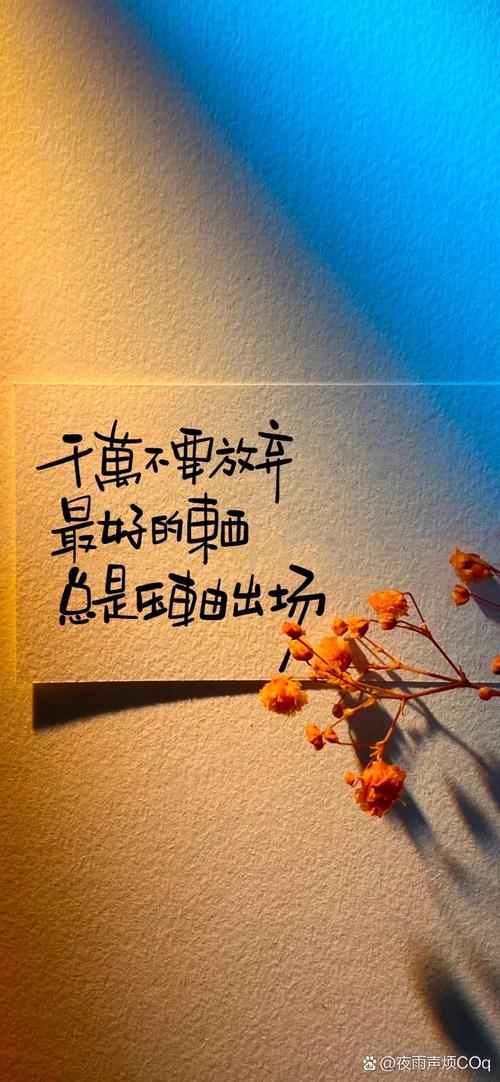 千萬不要放弃
最好的東西
总是压轴出场
@夜雨声烦COq